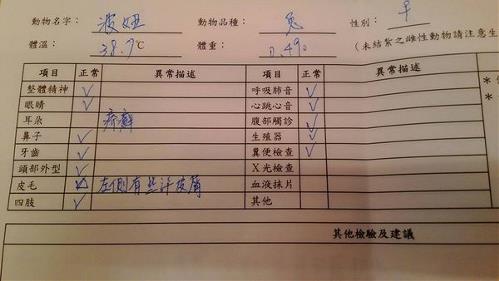 動物名字： 波妞 動物品種： 兔 性別： 早
體溫： 38.7℃ 體重： 0.490 (未結紮之雌性動物請注意生
項目 正常 異常描述 項目 正常 異常描述
整體精神 ✓ 呼吸肺音 ✓
眼睛 ✓ 心跳心音 ✓
耳朵 疥癬 腹部觸診 ✓
鼻子 ✓ 生殖器 ✓
牙齒 ✓ 糞便檢查 ✓
頭部外型 ✓ X光檢查
皮毛 左側有些汗皮屑 血液抹片
四肢 ✓ 其他
其他檢驗及建議